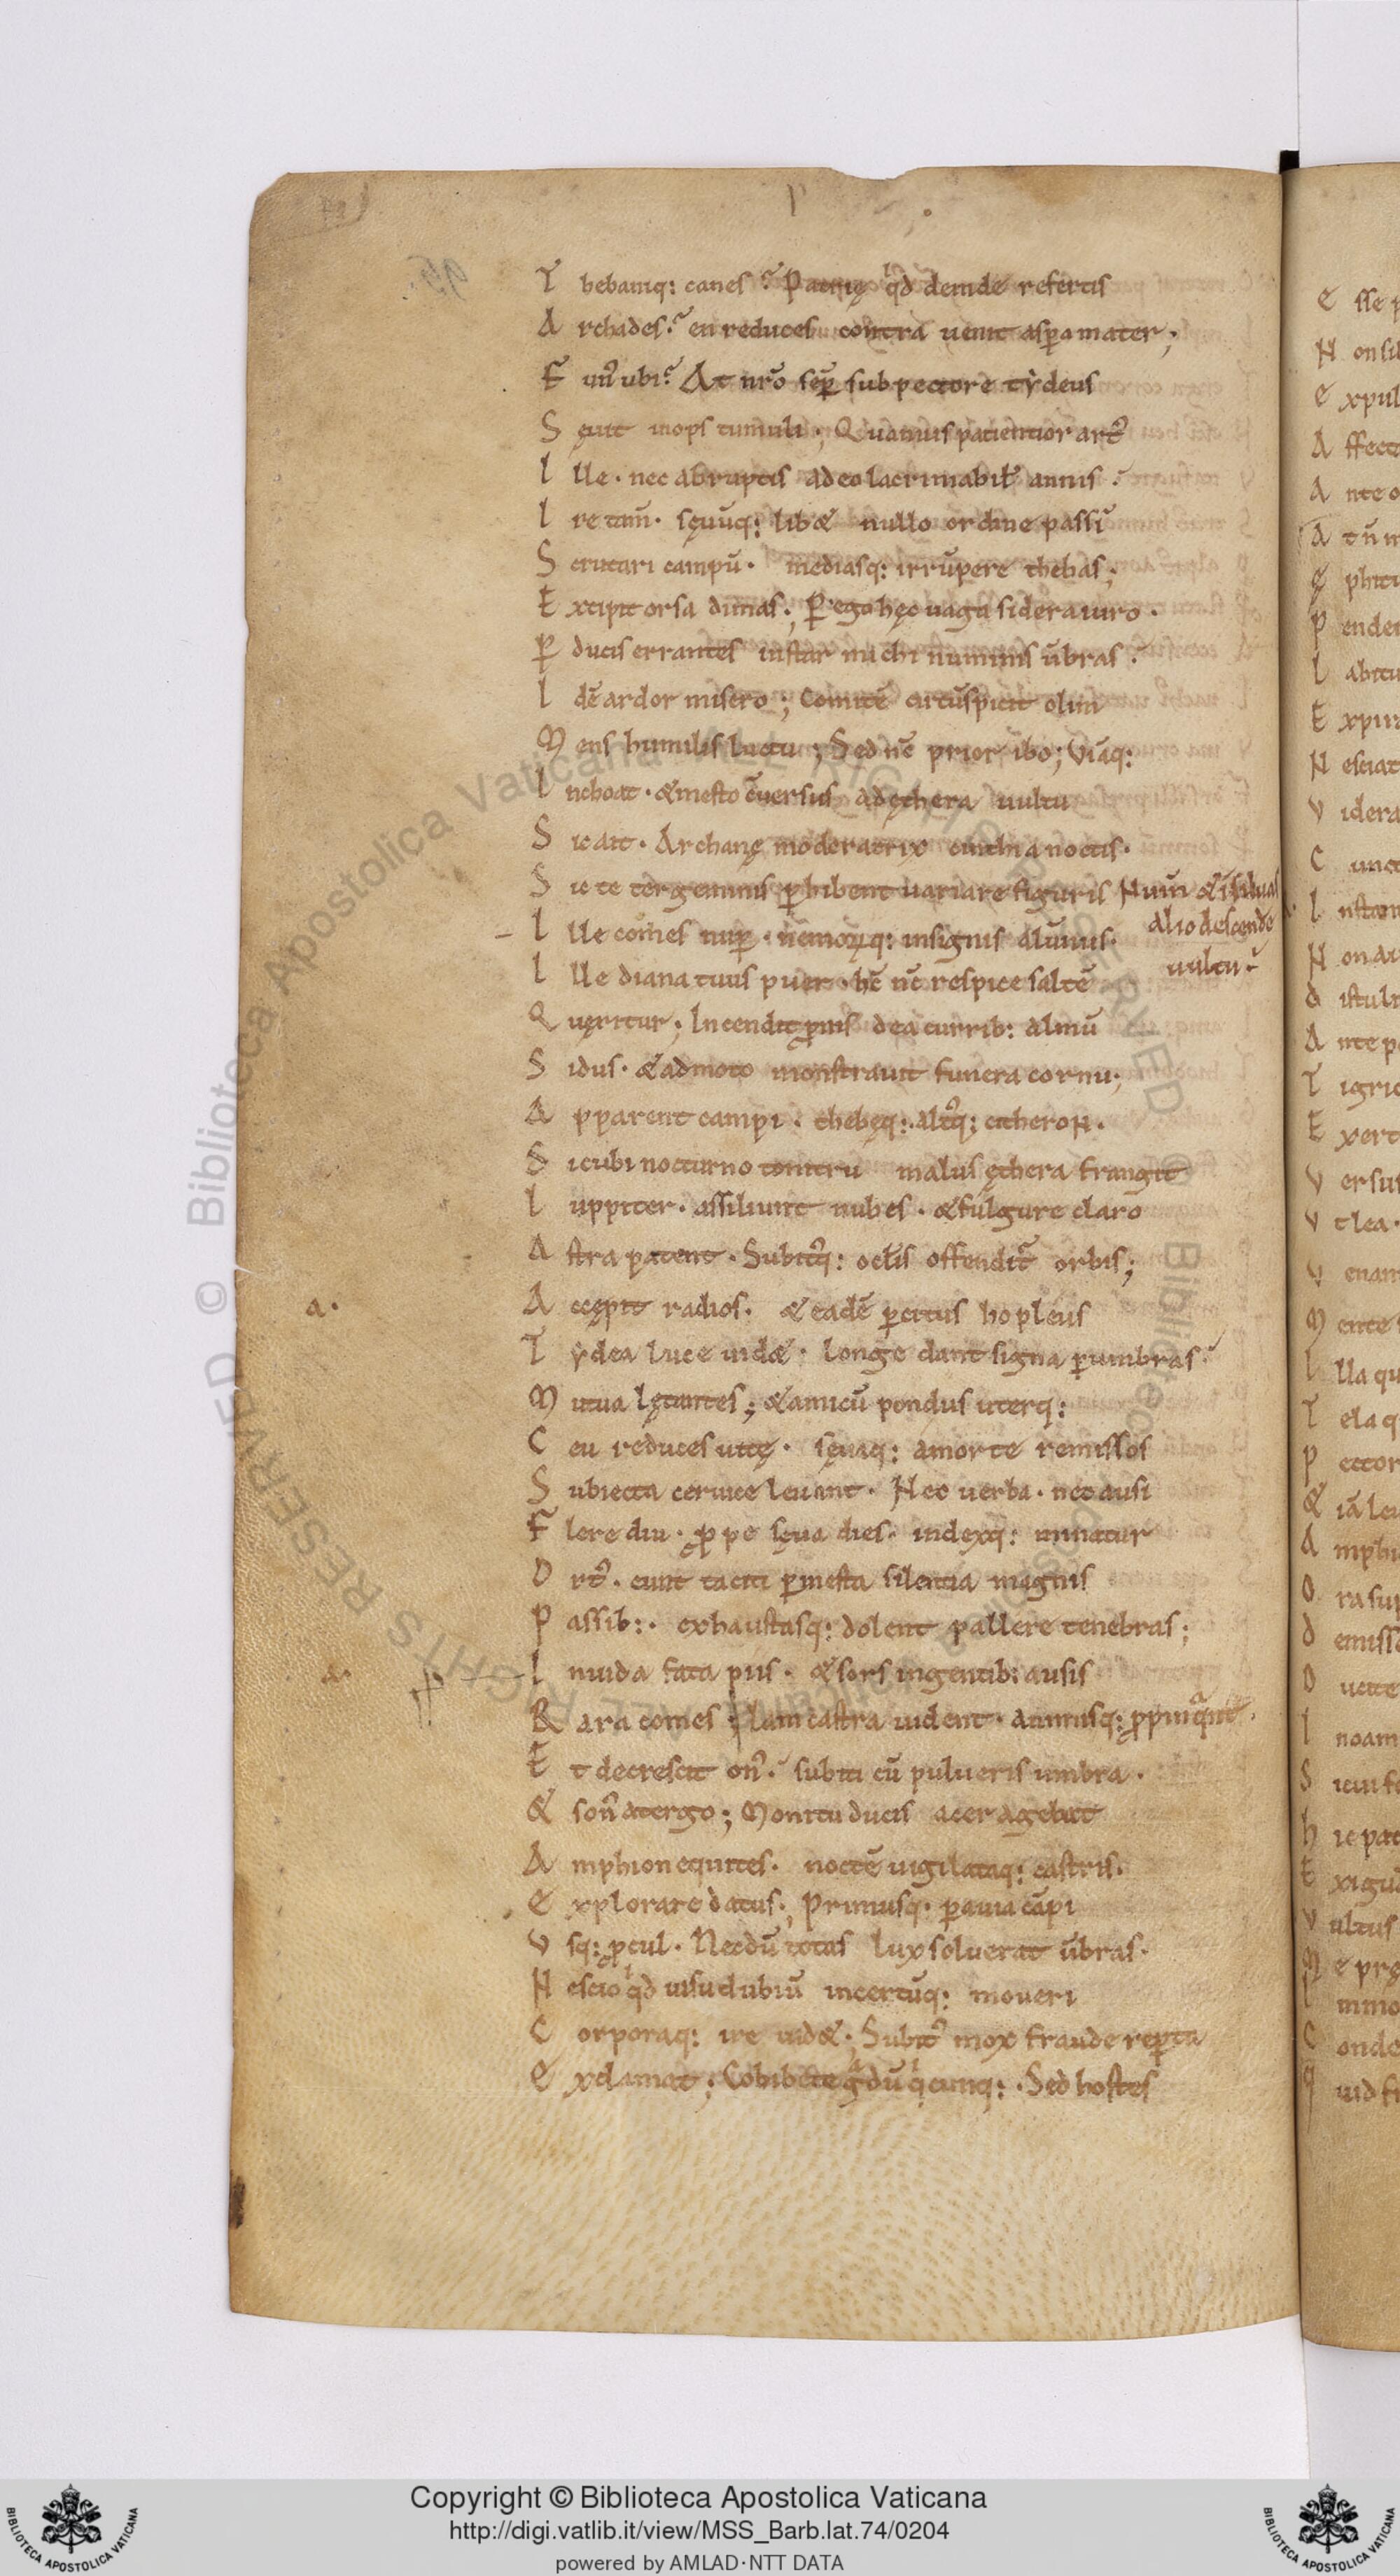 T hebaniq: canes? Patrię qd deinde refertis
A rchades? en reduces contra uenit aspa mater;
F un9 ubi? At nr̄o sep̄ sub pectore tẏdeus
S ęuit inops tumuli; Quamuis patientior art9
I lle · nec abruptis adeo lacrimabil' annis ·
I re tam̄ · sęuūq: lib& nullo ordine passī
S crutari campū · mediasq: irrūpere thebas;
E xcipit orsa dimas; P̱ ego hęc uaga sidera iuro ·
P̱ ducis errantes instar michi numinis ūbras ·
I dē ardor misero; Comitē circūspicit olim
M ens humilis luctu; Sed nc̄ prior ibo; Viāq:
I nchoat · & mesto c̄uersus ad ęthera uultu
S ic ait · Archanę moderatrix cinthia noctis ·
S ic te tergeminis p̱hibent uariare figuris Num̄ & ī siluas
alio descende
uultu ·
I lle comes nup̱ · nemorūq: insignis alūnus ·
I lle diana tuus puer · hc̄ nc̄ respice saltē
Q uęritur; Incendit p̱nis dea currib: almū
S idus · & admoto monstrauit funera cornu;
A pparent campi · thebęq: · alt9q: citheron ·
S ic ubi nocturno tonitru malus ęthera frangit
I uppiter · assiliunt nubes · & fulgure claro
A stra patent · Subit9q: oclīs offendit̄ orbis;
a. A ccępit radios · & eadē p̱citus hopleus
T ẏdea luce uid& · longe dant signa p̱ umbras ·
M utua lętantes; & amicū pondus uterq:
C eu reduces uitę · sęuaq: a morte remissos
S ubiecta ceruice leuant · Nec uerba · nec ausi
F lere diu · ꝓpe sęua dies · indexq: minatur
O rt9 · eunt taciti p̱ mesta silentia magnis
P assib: · exhaustasq: dolent pallere tenebras;
a. I nuida fata piis · & sors ingentib: ausis
R ara comes; Iam castra uident · animisq: ꝓpinqant ·
E t decrescit on9 · subiti cū pulueris umbra ·
& son9 a tergo; Monitu ducis acer agebat
A mphion equites · noctē uigilataq: castris ·
E xplorare datus; Primusq · p̱ auia cāpi
V sq: ꝓcul · Necdū totas lux soluerat ūbras ·
N escio qd uisu dubiū incertūq: moueri
C orporaq: ire uid& · Subit9 mox fraude rep̱ta
E xclamat; Cohibete gdū qcunq: · Sed hostes
© Biblioteca Apostolica Vaticana ALL RIGHTS RESERVED
Copyright © Biblioteca Apostolica Vaticana
http://digi.vatlib.it/view/MSS_Barb.lat.74/0204
powered by AMLAD·NTT DATA
BIBLIOTECA APOSTOLICA VATICANA
BIBLIOTECA APOSTOLICA VATICANA